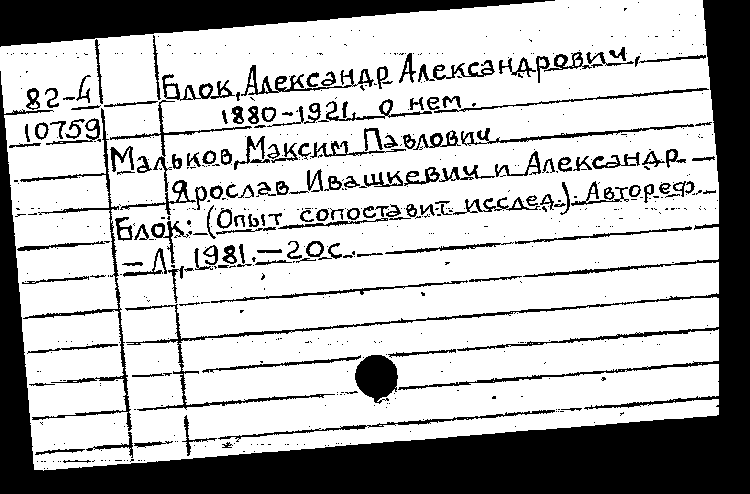 Блок, Александр Александрович,
82-4
1880-1921, о нем.
10759
Мальков, Максим Павлович.
Ярослав Ивашкевич и Александр
Блок: (Опыт сопоставит. исслед.). Автореф.
— Л., 1981. — 20с.